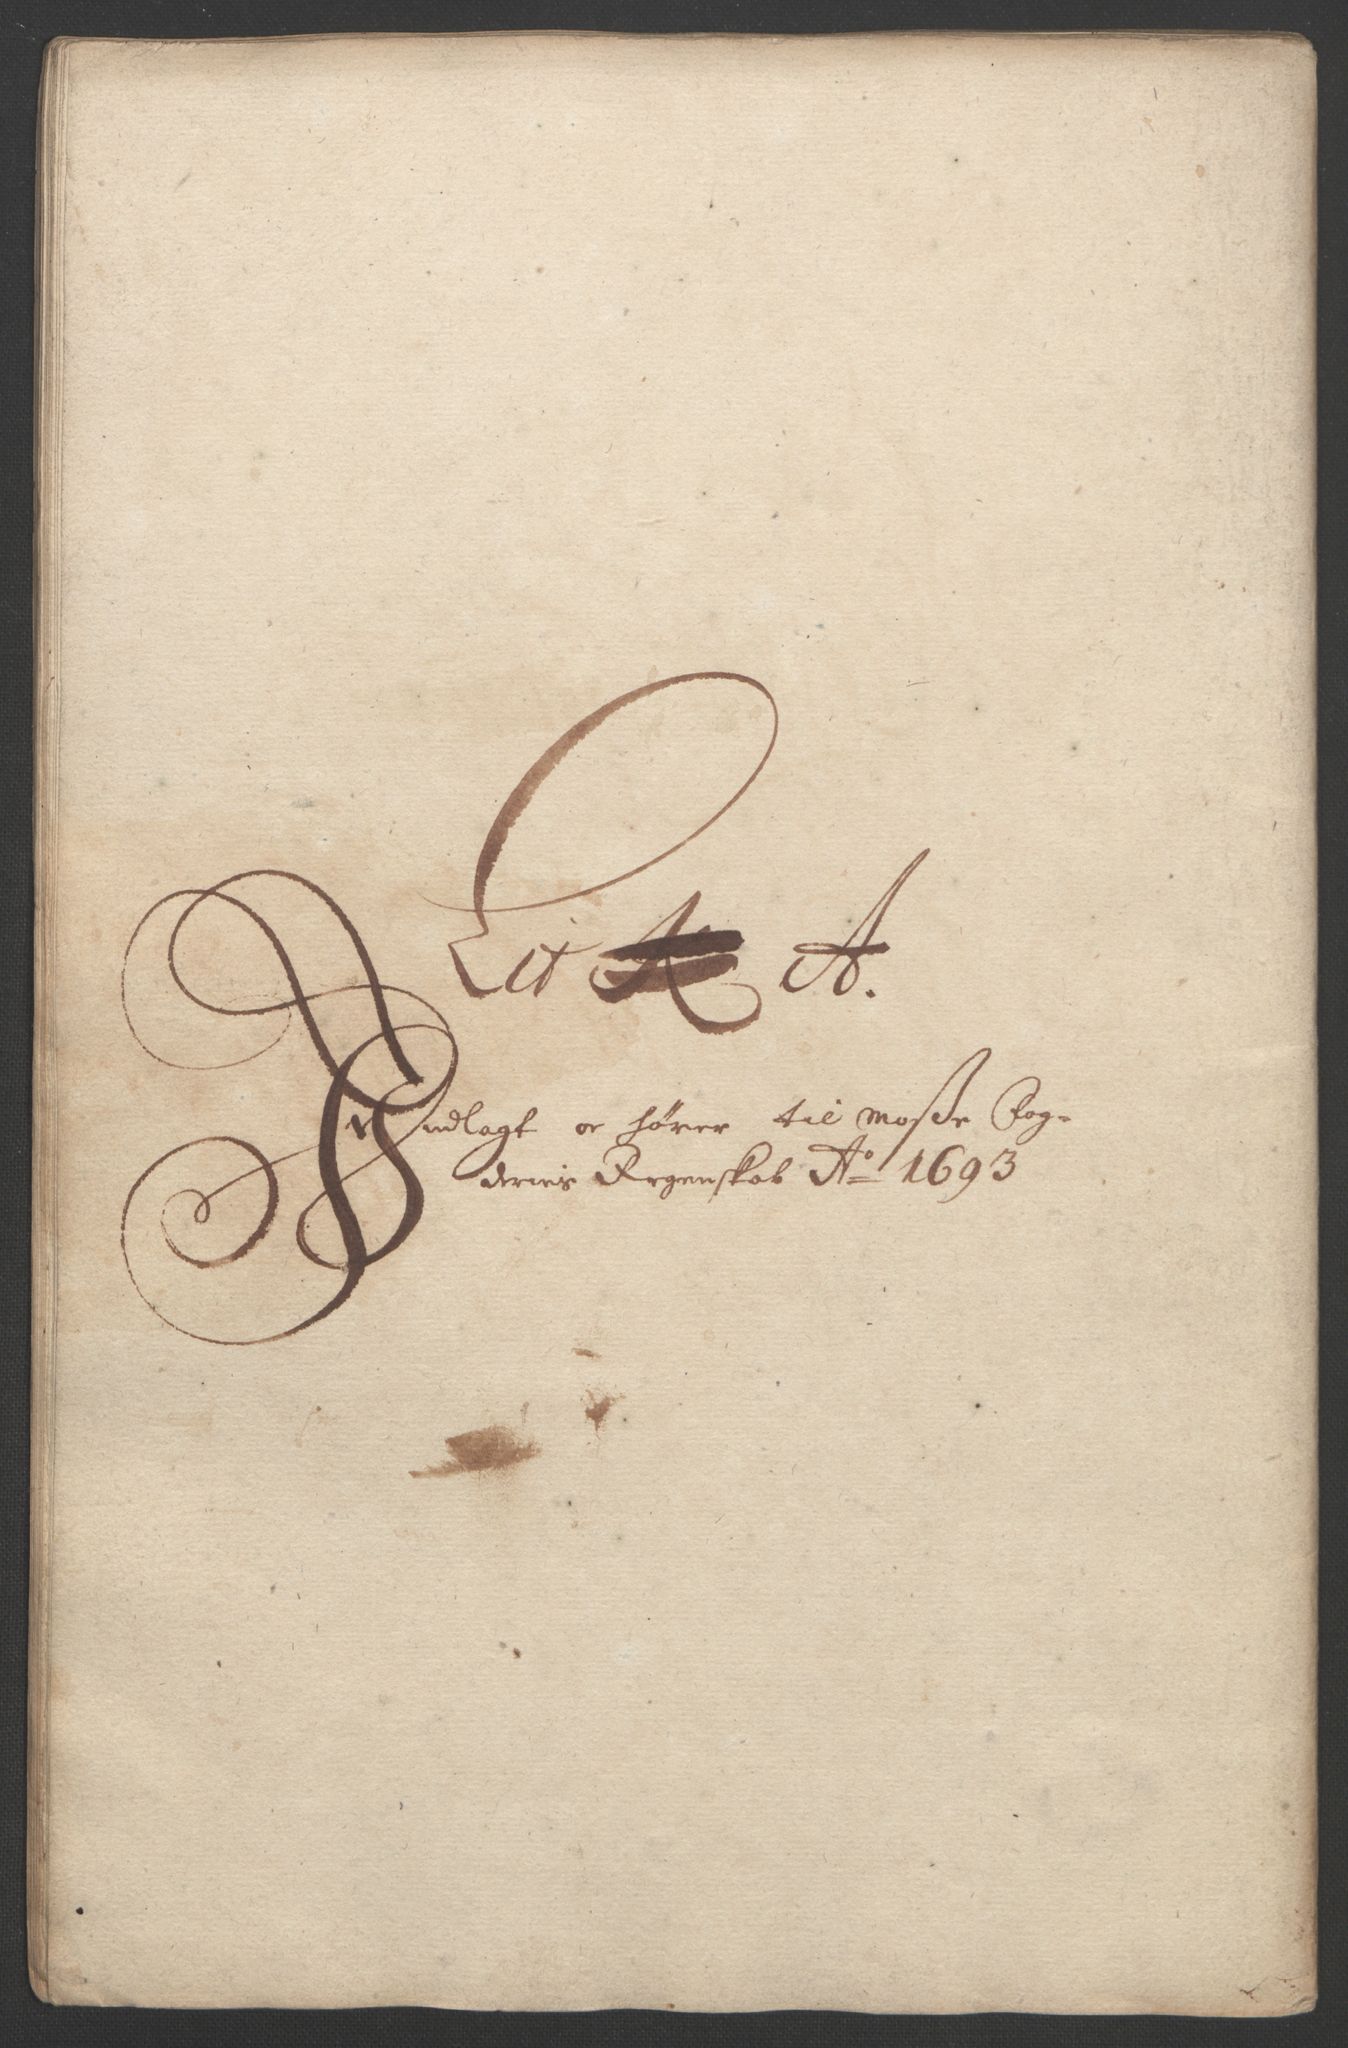 Lit A.
Indlagt oc hører til Mosse Fog-
deries Regenskab Ao 1693